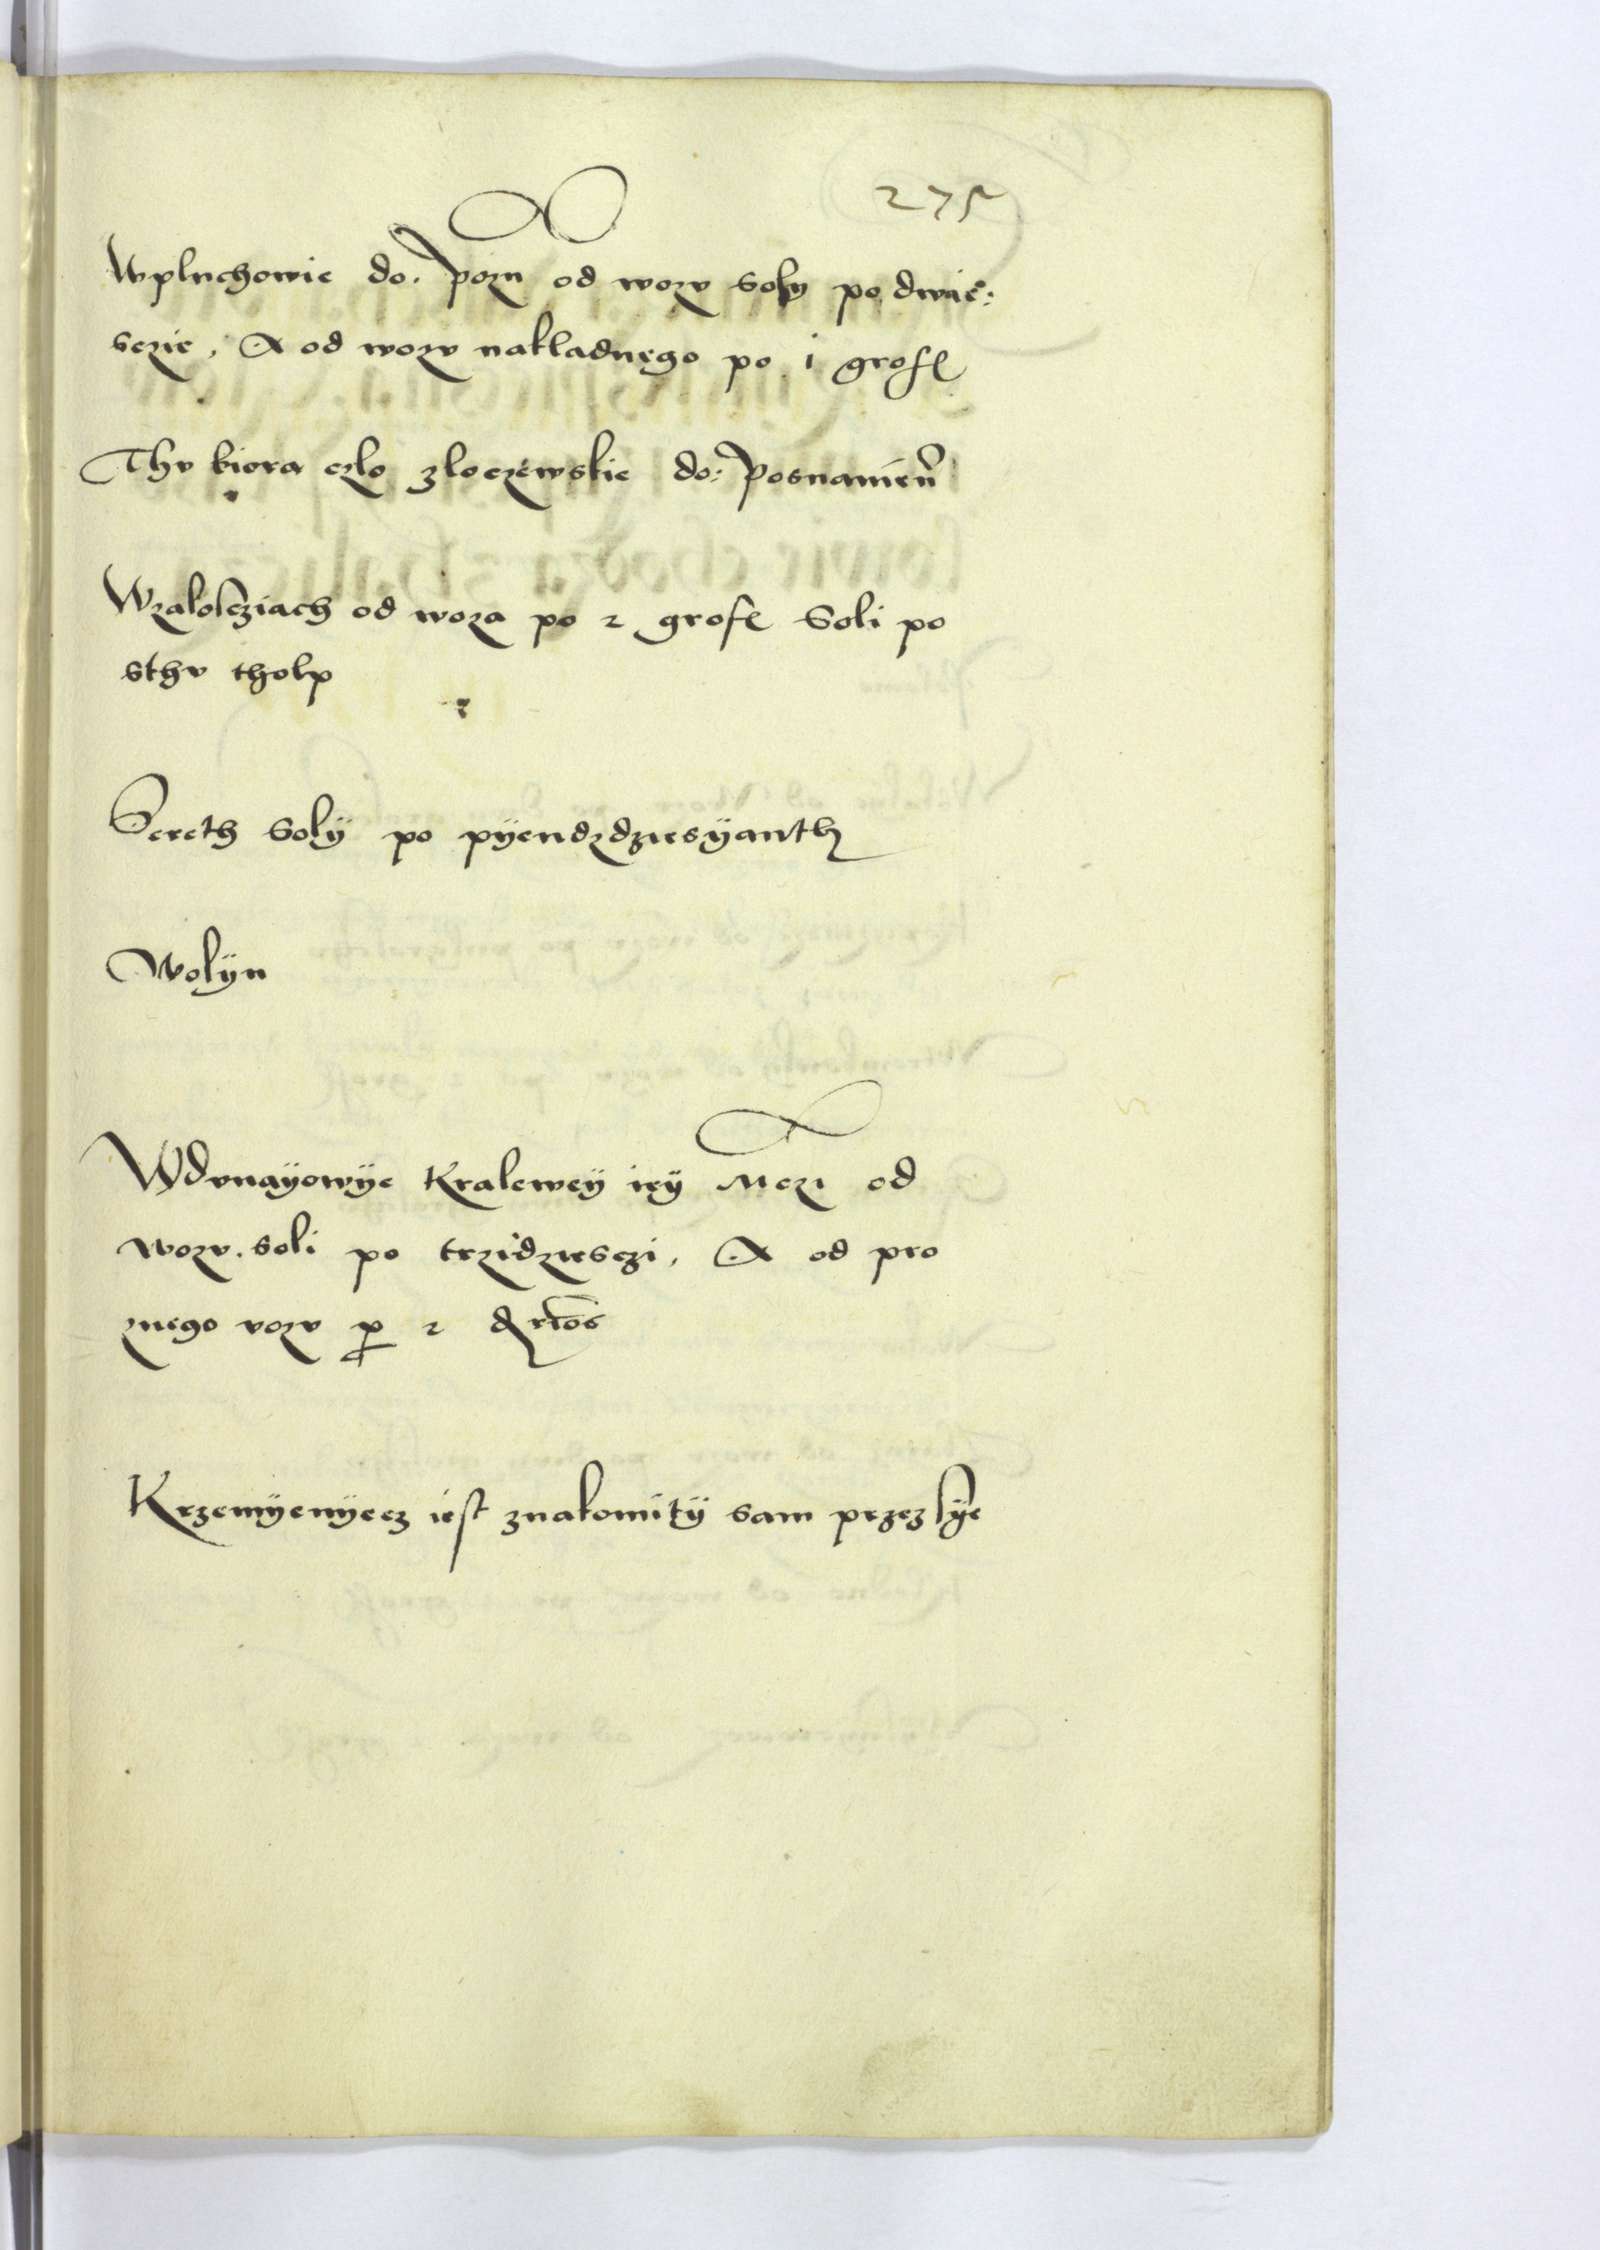 275
Wpluchowie do. pozn od wozv soly po dwie:
sczie, A od wozv nakladnego po 1 grosſ
Thv biora czlo zloczewskie do: Posnanien̄
Wzalosziach od woza po 2 grosſ Soli po
sthv tholp
Sereth Solÿ po pÿendzdziesÿanth
Wolÿn
Wdvnaÿowÿe Kraleweÿ ieÿ Mczi od
wozv. soli po trzidziesczi, A od pro
znego vozv p 2
Krzemÿenÿecz iest znakomitÿ sam przez sÿe